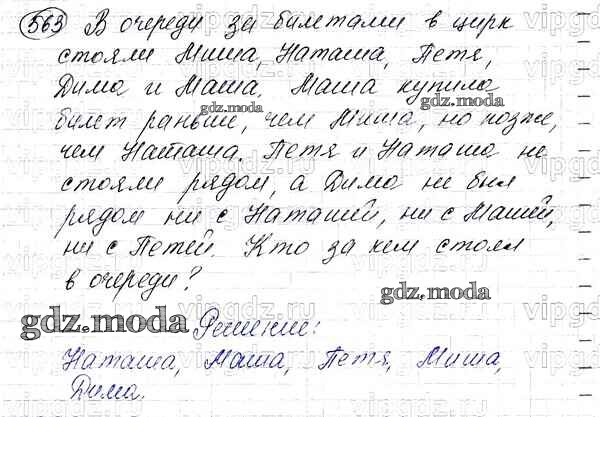 563 В очереди за билетами в цирк
стояли Миша, Наташа, Петя,
Дима и Маша. Маша купила
билет раньше, чем Миша, но позже,
чем Наташа. Петя и Наташа не
стояли рядом, а Дима не был
рядом ни с Наташей, ни с Машей,
ни с Петей. Кто за кем стоял
в очереди?
gdz.moda
gdz.moda
gdz.moda
gdz.moda
Решение:
Наташа, Маша, Петя, Миша,
Дима.